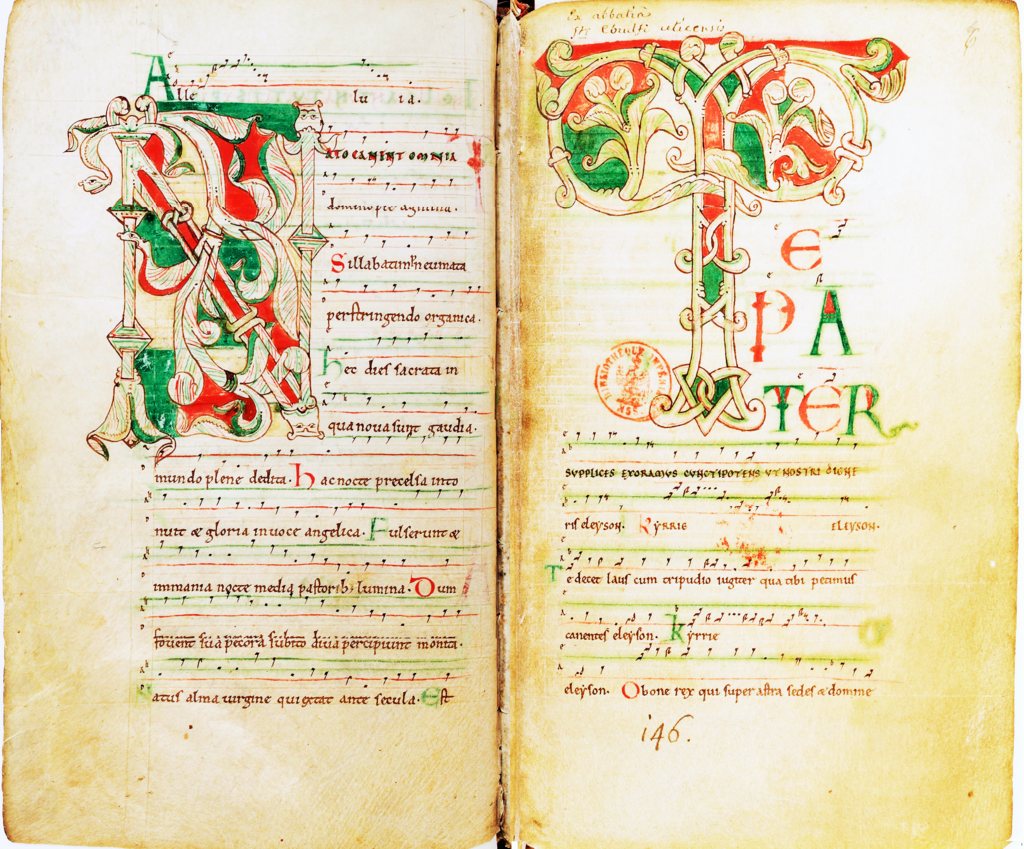 Alle lu ia.
NATO CANUNT OMNIA
domino pie agmina.
Sillabatim neumata
perstringendo organica.
hec dies sacrata in
qua nova sunt gaudia.
mundo plene dedita. hac nocte precelsa into
nuit & gloria in voce angelica. Fulserunt &
immania nocte media pastorib; lumina. Dum
fovent sua pecora subito diva percipiunt monita.
Natus alma virgine qui extat ante secula. Est
Ex abbatia
sti Ebrulfi uticensis
TE
PA
TER
SUPPLICES EXORAMUS CUNCTIPOTENS UT NOSTRI DIGNE
ris eleyson. KYRRIE ELEYSON.
Te decet laus cum tripudio iugiter qua tibi petimus
canentes eleyson. Kyrrie
eleyson. O bone rex qui super astra sedes & domine
146.